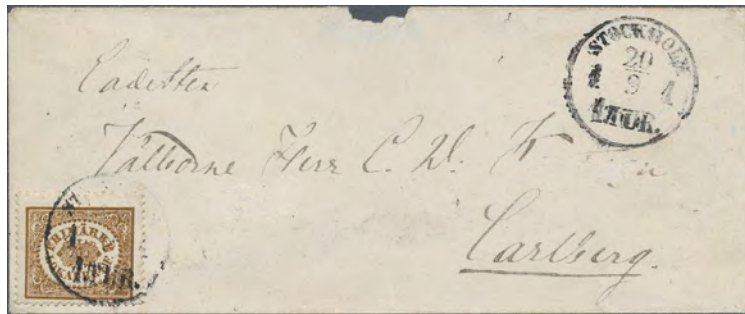 STOCKHOLM
20
9
1 1
1 TUR.
Cadetten
Välborne Herr C. W.
Carlberg.
1 TUR.